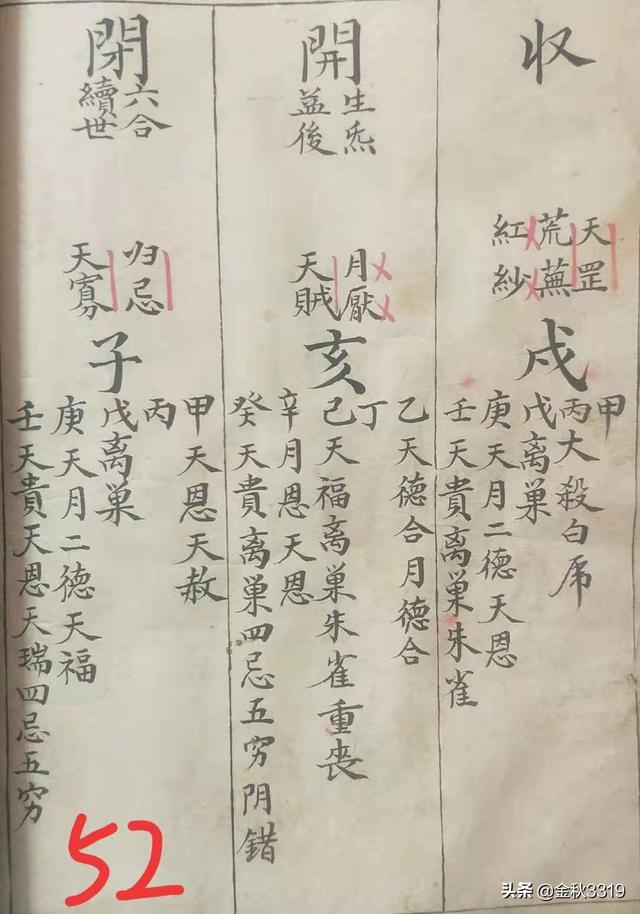 収
天罡
荒蕪
紅紗
戌
甲
丙大殺白虎
戊離巢
庚天月二德天恩
壬天貴离巢朱雀
開
生炁
益後
月厭
天賊
亥
乙天德合月德合
丁
己天福离巢朱雀重丧
辛月恩天恩
癸天貴离巢四忌五穷阴錯
閉
六合
續世
归忌
天寡
子
甲天恩天赦
丙
戊离巢
庚天月二德天福
壬天貴天恩天瑞四忌五穷
52
头条 @金秋3319